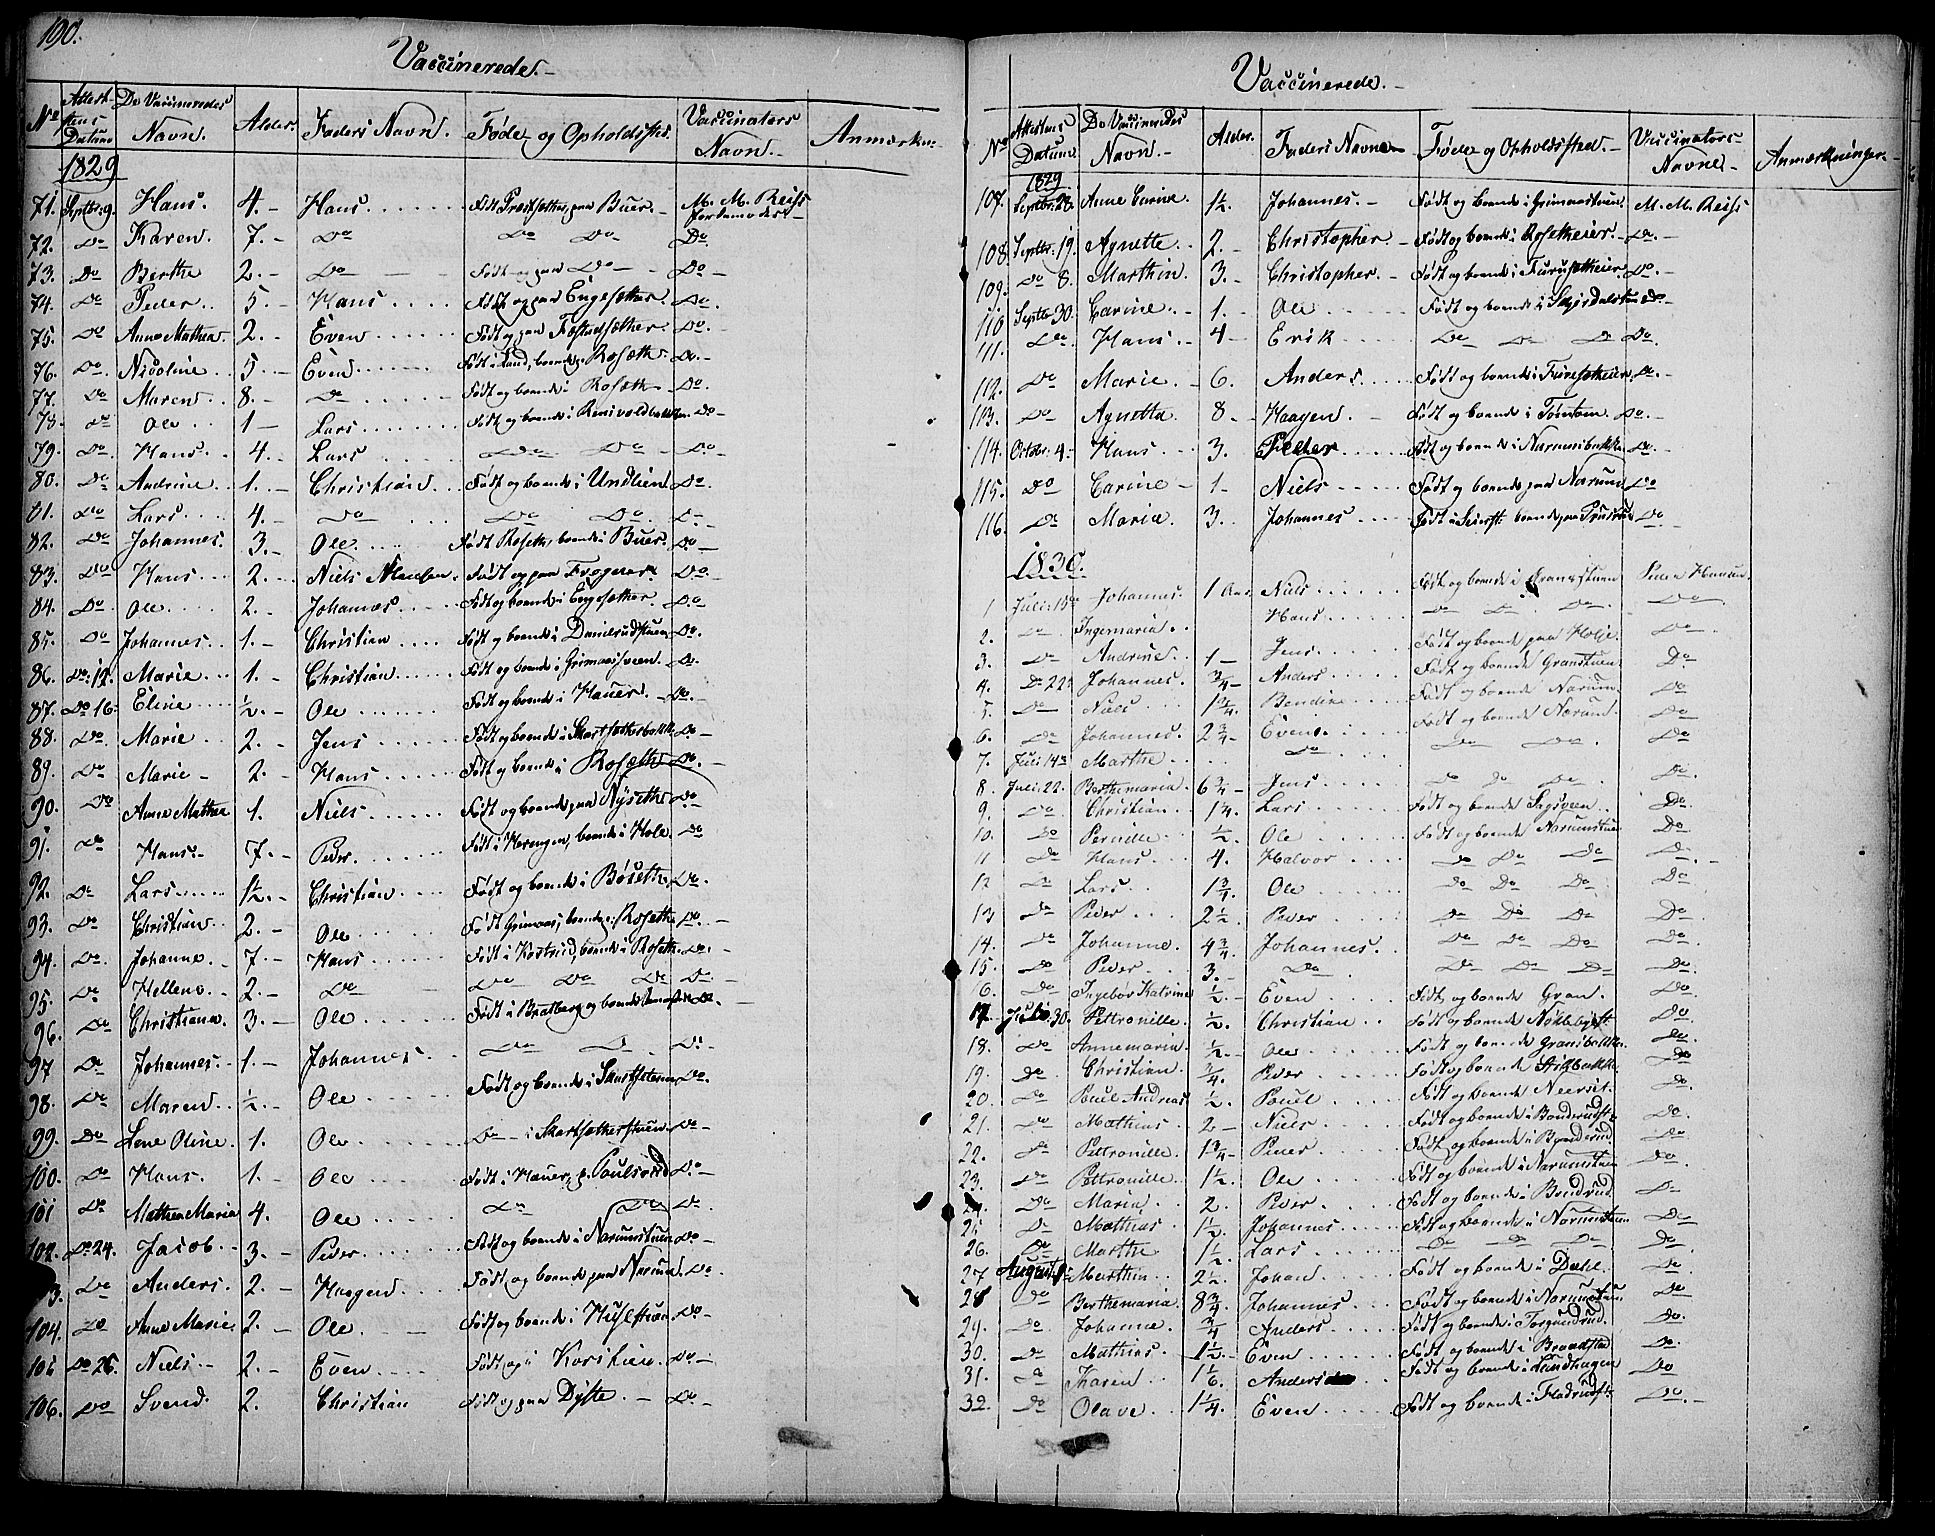 190.
Vaccinerede.-
No Attestens Datum De Vaccineredes Navn. Alder. Faders Navn. Føde og Opholdssted. Vaccinators Navn.- Anmærkn:
1829
71. Septbr: 9. Hans. 4.- Hans Født Buer.- M. M. Reiss
72. Do Karen. 7.- Do Do Do Do.
73. Do Berthe 2.- Do Født og paa Do Do.-
74. Do Peder 5.- Hans Født og paa Engesæther. Do.
75. Do Anne Mathea. 2.- Even Født og paa Do.
76. Do. Nicoline 5.- Even Født i Land, boende Rosæth. Do.-
77. Do Maren 8.- Do Født og boende i Rosæth Do.-
78. Do Ole 1- Lars Født og boende i Do-
79. Do. Hans 4.- Lars Do Do Do
80. Do Andrine 1.- Christian Født og boende i Undlien. Do.
81. Do Lars 4.- Do Do Do
82. Do Johannes. 3.- Ole Født Roseth, boende i Buer. Do-
83. Do Hans 2.- Niels Født og paa Frogner. Do.
84. Do. Ole 2.- Johannes Født og boende i Engesæther. Do.
85. Do Johannes. 1.- Christian Født og boende i Do.
86. Do: 12. Marie 1.- Christian Født og boende i Do.
87. Do 16. Eline ½.- Ole Født og boende i Hauer.- Do.-
88. Do Marie 2.- Jens Født og boende i Do-
89. Do Marie- 2.- Hans Født og boende i Rosæth. Do.-
90. Do Anne Mathea 1. Niels. Født og boende paa Nyseth. Do.
91. Do Hans.- 7.- Peder. Født i Herngen, boende i Hole Do
92. Do Lars 1½.- Christian Født og boende i Bøseth. Do.
93. Do. Christian 2.- Ole Født Grimaas, boende i Roseth Do.
94. Do. Johanne. 7- Hans Født i boende i Roseth. Do.-
95. Do Hellene. 2.- Do Do Do Do Do.-
96. Do Christiane. 3.- Ole Født i Bratberg og boende Do.-
97 Do Johannes. 1- Johannes Do Do Do.-
98. Do Maren ½.- Ole Født og boende i Do.
99. Do Lene Oline. 1. Ole Do i Skartsætherstuen Do-
100. Do Hans. 1. Ole Født i Hauer, p. Paulsrud Do.-
101 Do Mathea Maria 4. Ole Do Do Do.
102. Do 24. Jacob 3.- Peder Født og boende i Narumstuen Do-
3. Do Anders 2.- Haagen Født og boende paa Narum. Do.
104. Do Anne Marie. 2.- Ole Født og boende i Do-
105 Do 26. Niels.- 2.- Even Født, og i Korslien. Do.-
106. Do Svend 2. Christian Født og paa Dyste. Do.-
Vaccinerede.-
No Attestens Datum. De Vaccineredes Navn.- Alder. Faders Navn Føde og Opholdssted.- Vaccinators Navne.- Anmærkninger.
1829
107. Septbr. 28. Anne Carine 1½. Johannes.- Født og boende i Grimaastuen M. M. Reiss
108. Septbr. 19. Agnette. 2.- Christopher.- Født og boende i Rosetheier. Do.-
109. Do 8. Marthin. 3.- Christopher.- Født og boende i Furusetheier Do.-
110 Septbr 30. Carine. 1.- Ole Født og boende i Do
111. Do Hans 4 Erik Do Do Do Do.-
112. Do Marie. 6. Anders Født og boende i Furusetheier Do.-
113. Do Agnetta 8- Haagen Født og boende i Do.-
114. October: 4.- Hans 3. Peder Født og boende i Narumsbakken Do.
115. Do Carine- 1- Niels Født og boende paa Narum. Do
116. Do Maria. 3. Johannes Født i boende paa Do-
1830.
1 Juli: 15de Johannes. 1 Aar Niels Født og boende i Granestuen Peder Hansen
2. Do Ingemaria. Hans Do Do Do. Do
3. Do Andrine. 1- Jens Født og boende paa Do
4. Do 22de Johannes. ¾- Anders Født og boende Granstuen Do
5. Do Niels 1¾. Bendix Født og boende Narum. Do
6. Do Johannes. 2¾- Even. Født og boende Narum. Do
7. Juli 14de Marthe Do Do Do. Do
8. Juli. 22. Berthemaria. 6¾- Jens Do Do Do Do.
9. Do Christian. 1¼. Lars Født og boende Do.
10. Do Pernille ½ Ole Født og boende Narumstuen Do
11 Do Hans 4. Halvor Do Do Do Do.-
12 Do Lars 1¾. Ole Do Do Do Do
13 Do Peder 2½ Peder Do Do Do Do.
14. Do Johanne. 4¾ Johannes. Do Do Do Do.
15. Do Peder 3.- Do Do Do Do Do.
16. Do Ingebør Katrine ½- Even Født og boende Gran. Do
17. Julo. 30. Pettronille ½. Christian Født og boende Do.
18. Do Annemaria. ½- Ole Født og boende Gransbakken Do.
19. Do Christian. ¾. Peder Født og boende Do
20. Do Poul Andreas ½. Poul Født og boende Do
21. Do Mathias 2- Niels Født og boende i Do.
22. Do Pettronille. 1¾- Peder Født og boende i Do
23. Do Pettronille 1½. Ole Født og boende i Narumstuen Do
Do Maria 2. Peder Født og boende i Bondrud Do
25. Do Mathias 1½. Johannes Født og boende i Narumstuen Do
26. Do Marthe 1½ Lars Do Do Do Do
27 August: 1. Marthin 2½. Johan Født og boende i Dahl. Do
28 Do Berthemaria. 8¾. Johannes Født og boende i Narumstuen Do
29. Do Johanne. ¾ Anders Født og boende i Do.
30. Do Mathias 1½.- Even Født og boende i Do.
31. Do Karen 1⅙. Anders Født og boende i Lundhagen Do
32. Do Olave 1¼. Even Født og boende i Do.-